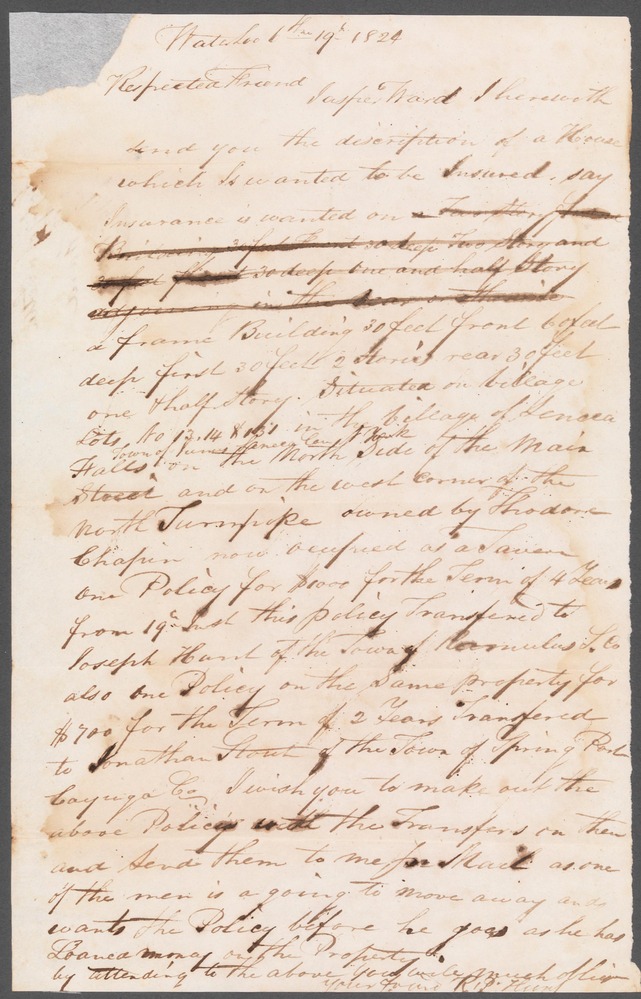 Waterloo 19th 1824
Respected Friend
Jasper Ward I herewith
send you the discription of a House
which Is wanted to be Insured, say
Insurance is wanted on a Two Story
Building 30 feet front 30 deep Two Story and
30 deep one and half Story
in the rear
a frame Building 30 feet front 60 feet
deep first 30 feet 2 Stories rear 30 feet
one & half Story. Situated on Village
Lots No 13, 14 & 151 in the Village of Seneca
Town of Junius Seneca Cou N York
Falls on the North Side of the Main
Street and on the west corner of the
North Turnpike owned by Theodore
Chapin now ocupied as a Tavern
one Policy for $1000 for the Term of 4 Years
from 19th Inst this policy Transfered to
Joseph Hunt of the Town of Romulus S. Co
also one Policy on the Same property for
$700 for the Term of 2 Years Transfered
to Jonathan Stout of the Town of Spring Port
Cayuga Co, I wish you to make out the
above Policys with the Transfers on them
and send them to me pr Mail as one
of the men is a going to move away and
wants the Policy before he goes as he has
Loaned money on the Property
by attending to the above you will much oblige
Your Friend R. P. Hunt